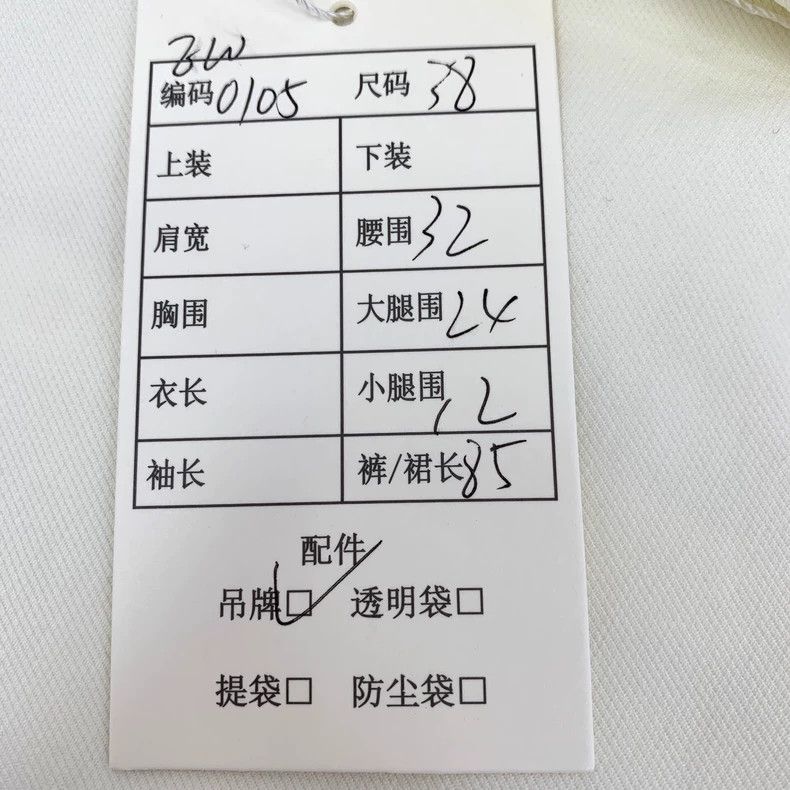 BW
编码0105 尺码38
上装 下装
肩宽 腰围32
胸围 大腿围24
衣长 小腿围12
袖长 裤/裙长85
配件
吊牌☑ 透明袋□
提袋□ 防尘袋□